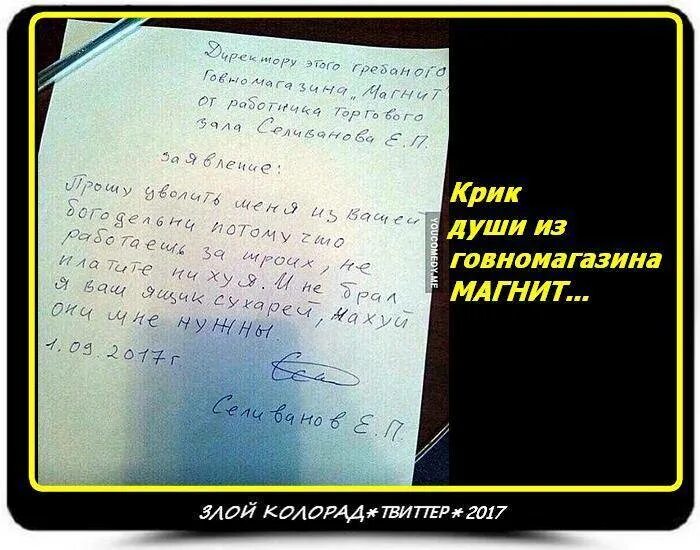 Директору этого гребаного
говномагазина „Магнит"
от работника торгового
зала Селиванова Е.П.
заявление:
Прошу уволить меня из вашей
богодельни потому что
работаешь за троих, не
платите ни хуя. И не брал
я ваш ящик сухарей, нахуй
они мне нужны.
1.09.2017г
Селиванов Е.П.
YOUCOMEDY.ME
Крик
души из
говномагазина
МАГНИТ...
ЗЛОЙ КОЛОРАД*ТВИТТЕР*2017